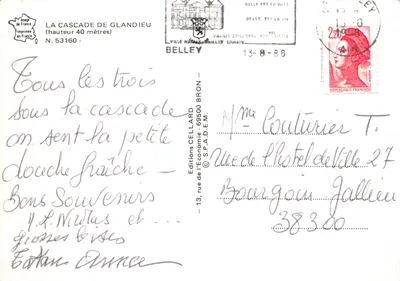 Image de France
Imprimée en France
LA CASCADE DE GLANDIEU
(hauteur 40 mètres)
N. 53160 -
BELLEY
13-8-86
2,20
Tous les trois
sous la cascade
on sent la petite
douche fraîche -
Bons Souvenirs
et ...
grosses bises
Tatan
Editions CELLARD
- 13, rue de l'Economie - 69500 BRON -
© S.P.A.D.E.M.
Mme Couturier T.
Rue de l'Hotel de Ville 27
Bourgoin Jallieu
38300